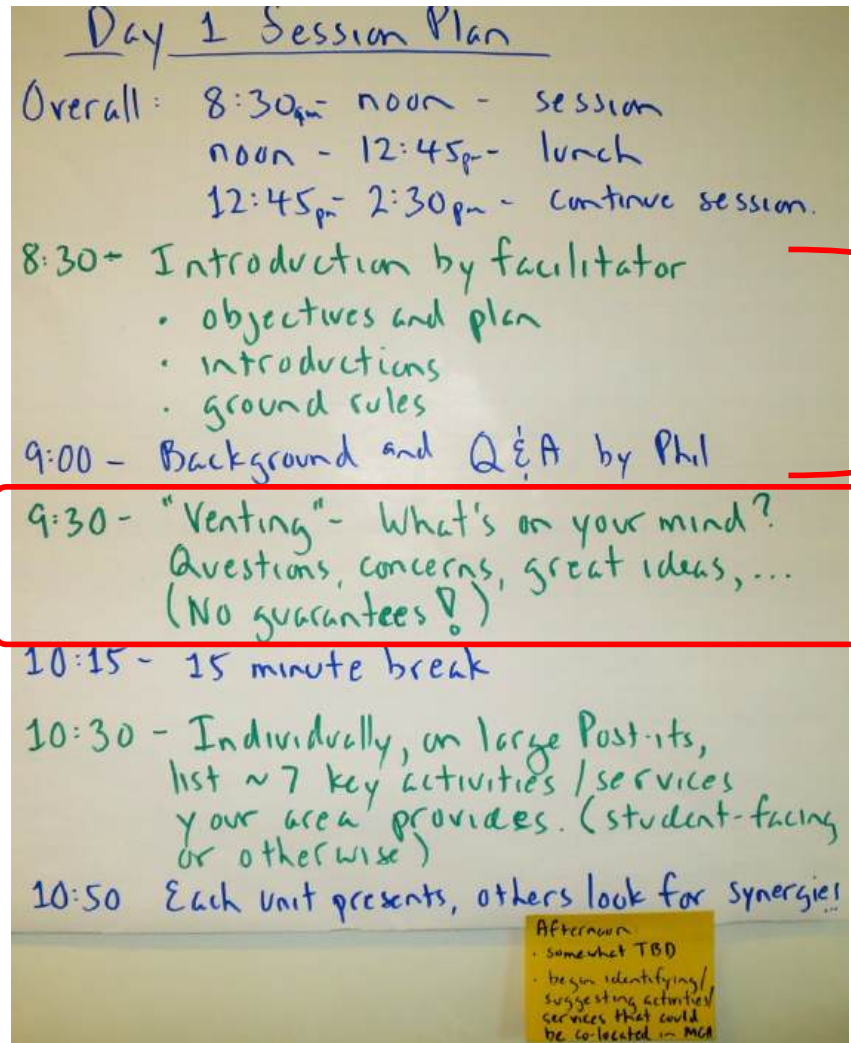 Day 1 Session Plan
Overall: 8:30am - noon - session
noon - 12:45pm - lunch
12:45pm - 2:30pm - continue session.
8:30 - Introduction by facilitator
• objectives and plan
• introductions
• ground rules
9:00 - Background and Q & A by Phil
9:30 - "Venting" - What's on your mind?
Questions, concerns, great ideas, ...
(No guarantees!)
10:15 - 15 minute break
10:30 - Individually, on large Post-its,
list ~7 key activities / services
your area provides. (student-facing
or otherwise)
10:50 Each unit presents, others look for synergies
Afternoon
• somewhat TBD
• begin identifying/
suggesting activities/
services that could
be co-located in MCA